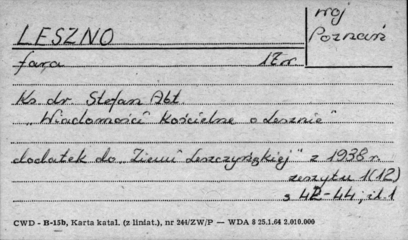 LESZNO
woj
Poznań
fara 17 w.
Ks. dr. Stefan Abt.
"Wiadomości Kościelne o Lesznie"
dodatek do "Ziemi Leszczyńskiej" z 1938 r.
zeszytu 1(12)
s 42-44; il. 1
CWD - B-15b, Karta katal. (z liniat.), nr 244/ZW/P — WDA S 25.1.64 2.010.000